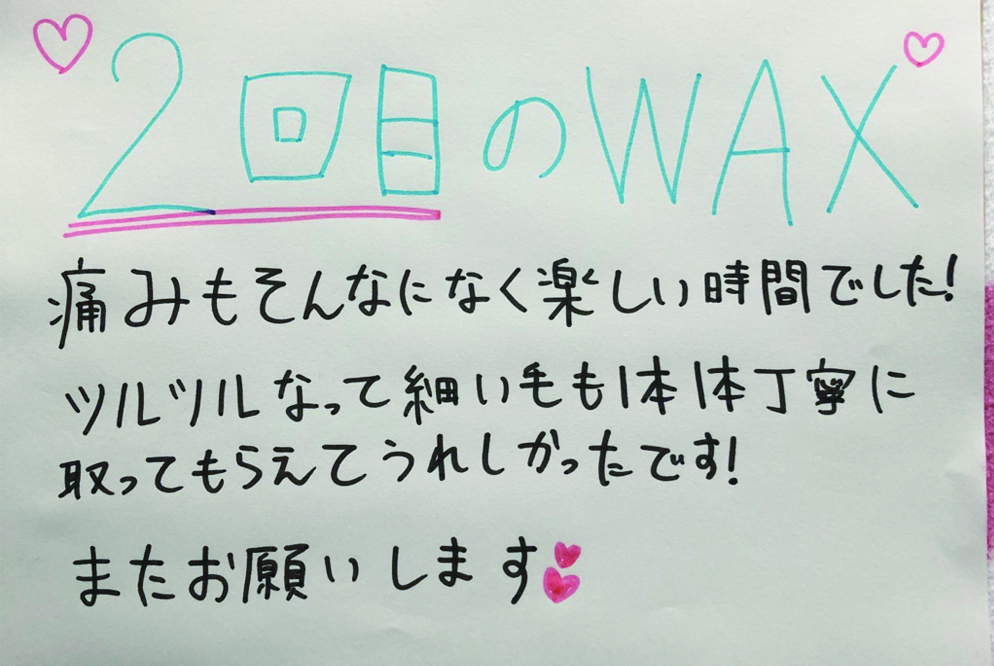 2回目のWAX
痛みもそんなになく楽しい時間でした!
ツルツルなって細い毛も1本1本丁寧に
取ってもらえてうれしかったです!
またお願いします